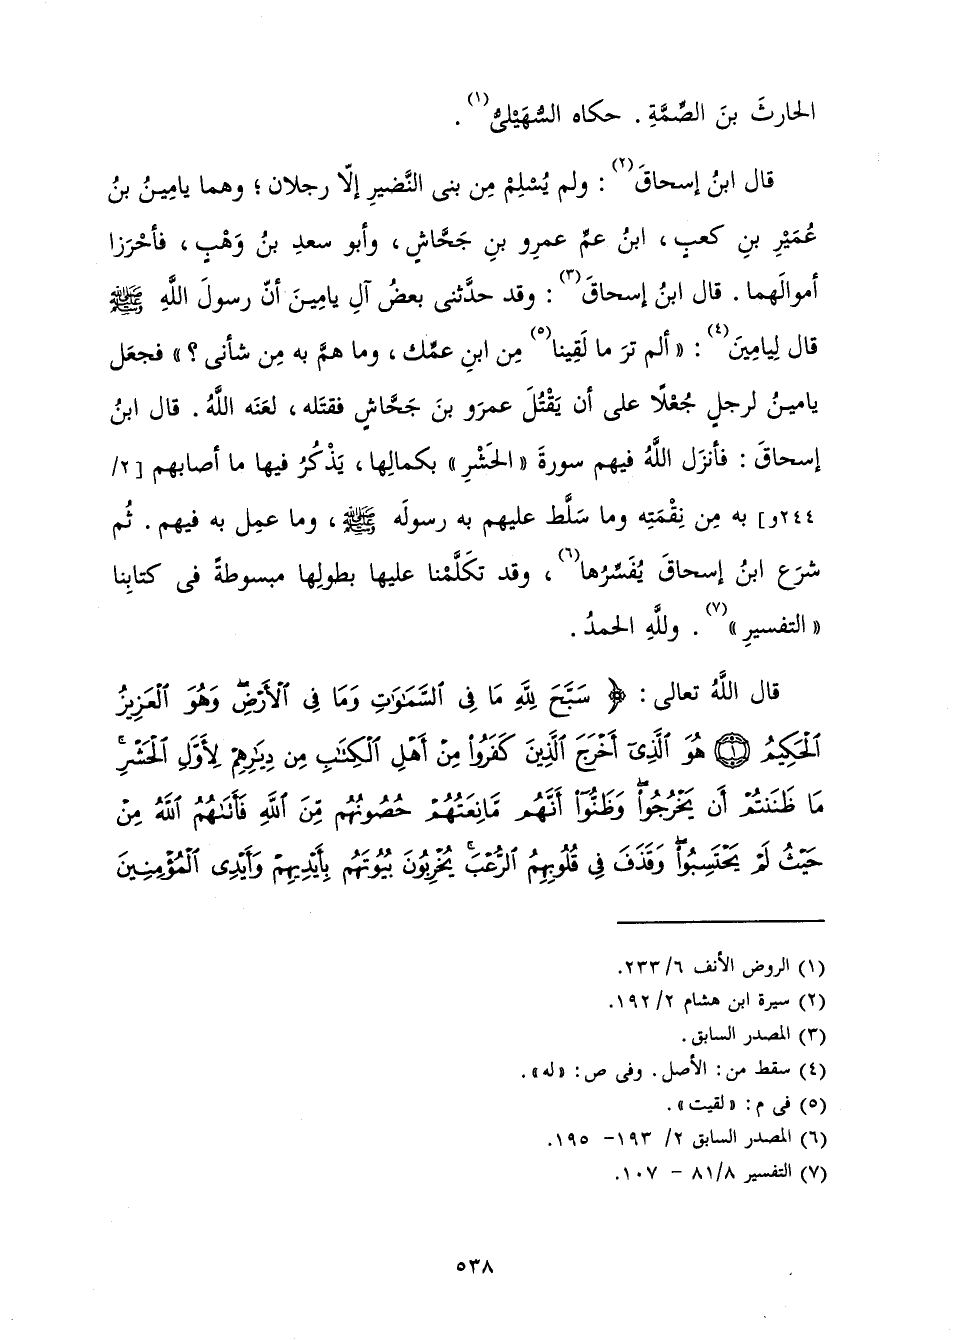 الحارثَ بنَ الصِّمَّةِ . حكاه السُّهَيْلىُّ(١) .
قال ابنُ إسحاقَ(٢) : ولم يُسْلِمْ مِن بنى النَّضيرِ إلّا رجلان ؛ وهما يامِينُ بنُ
عُمَيْرِ بنِ كعبٍ ، ابنُ عمِّ عمرِو بنِ جَحَّاشٍ ، وأبو سعدِ بنُ وَهْبٍ ، فأحْرَزا
أموالَهما . قال ابنُ إسحاقَ(٣) : وقد حدَّثنى بعضُ آلِ يامِينَ أنّ رسولَ اللَّهِ ﷺ
قال لِيامِينَ(٤) : « ألم ترَ ما لَقِينا(٥) مِن ابنِ عمِّك ، وما همَّ به مِن شأنى ؟ » فجعَل
يامينُ لرجلٍ جُعْلًا على أن يَقْتُلَ عمرَو بنَ جَحَّاشٍ فقتَله ، لعَنه اللَّهُ . قال ابنُ
إسحاقَ : فأنزَل اللَّهُ فيهم سورةَ « الحَشْرِ » بكمالِها ، يَذْكُرُ فيها ما أصابهم [ ٢/
٢٤٤و] به مِن نِقْمَتِه وما سَلَّط عليهم به رسولَه ﷺ ، وما عمِل به فيهم . ثُم
شرَع ابنُ إسحاقَ يُفَسِّرُها(٦) ، وقد تكَلَّمْنا عليها بطولِها مبسوطةً فى كتابِنا
« التفسيرِ »(٧) . وللَّهِ الحمدُ .
قال اللَّهُ تعالى : ﴿ سَبَّحَ لِلَّهِ مَا فِى ٱلسَّمَٰوَٰتِ وَمَا فِى ٱلْأَرْضِۖ وَهُوَ ٱلْعَزِيزُ
ٱلْحَكِيمُ ۝١ هُوَ ٱلَّذِىٓ أَخْرَجَ ٱلَّذِينَ كَفَرُوا۟ مِنْ أَهْلِ ٱلْكِتَٰبِ مِن دِيَٰرِهِمْ لِأَوَّلِ ٱلْحَشْرِۚ
مَا ظَنَنتُمْ أَن يَخْرُجُوا۟ۖ وَظَنُّوٓا۟ أَنَّهُم مَّانِعَتُهُمْ حُصُونُهُم مِّنَ ٱللَّهِ فَأَتَىٰهُمُ ٱللَّهُ مِنْ
حَيْثُ لَمْ يَحْتَسِبُوا۟ۖ وَقَذَفَ فِى قُلُوبِهِمُ ٱلرُّعْبَۚ يُخْرِبُونَ بُيُوتَهُم بِأَيْدِيهِمْ وَأَيْدِى ٱلْمُؤْمِنِينَ
(١) الروض الأنف ٦/ ٢٣٣.
(٢) سيرة ابن هشام ٢/ ١٩٢.
(٣) المصدر السابق .
(٤) سقط من : الأصل . وفى ص : « له » .
(٥) فى م : « لقيت » .
(٦) المصدر السابق ٢/ ١٩٣ - ١٩٥.
(٧) التفسير ٨/ ٨١ - ١٠٧.
٥٣٨